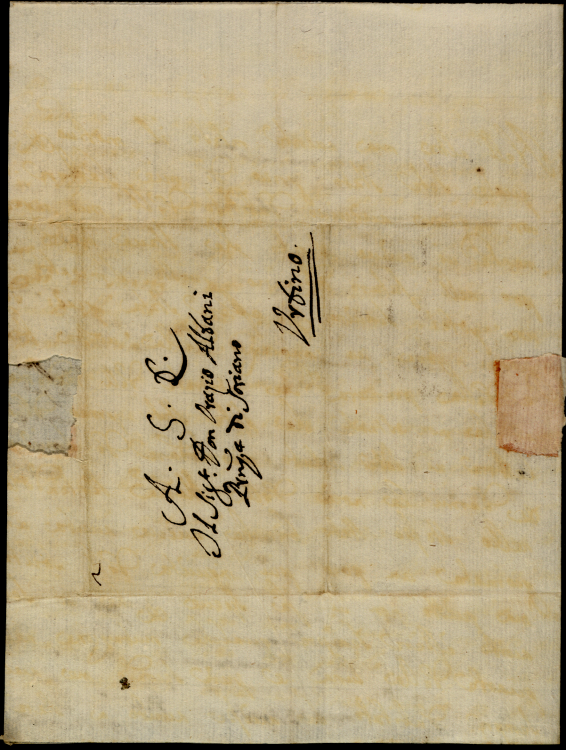 A. S. E.
Il Sig.r Don Orazio Albani
Prnpe di Soriano
Urbino.